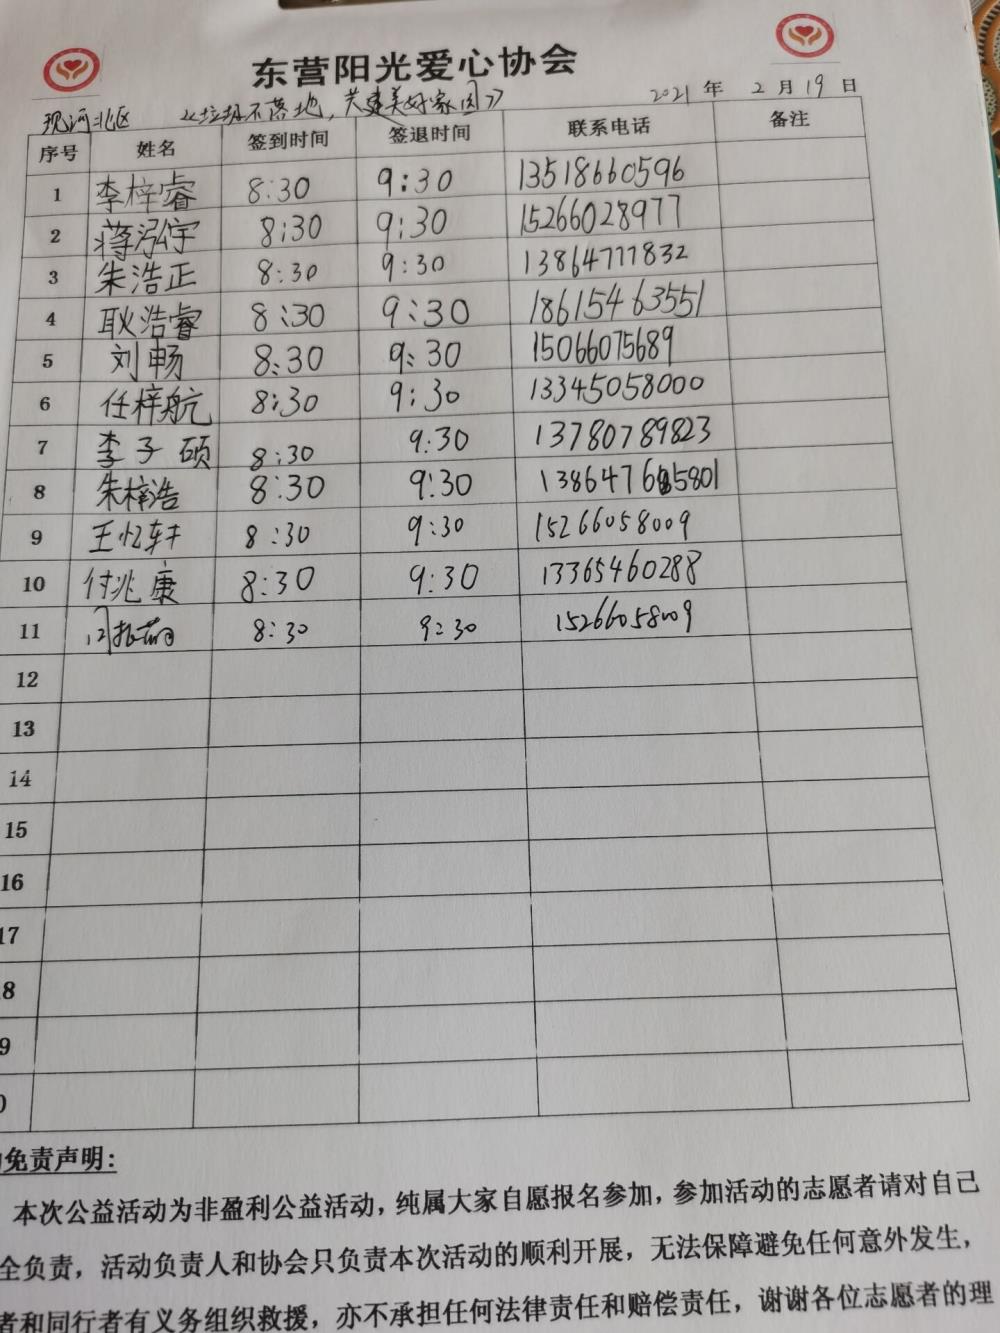 东营阳光爱心协会
现河北区 《垃圾不落地，共建美好家园》 2021年 2月19日
序号 姓名 签到时间 签退时间 联系电话 备注
1 李梓睿 8:30 9:30 13518660596
2 蒋泓宇 8:30 9:30 15266028977
3 朱浩正 8:30 9:30 13864777832
4 耿浩睿 8:30 9:30 18615463551
5 刘畅 8:30 9:30 15066075689
6 任梓航 8:30 9:30 13345058000
7 李子硕 8:30 9:30 13780789823
8 朱梓浩 8:30 9:30
9 王忆轩 8:30 9:30 15266058009
10 付兆康 8:30 9:30 13365460288
11 8:30 9:30 15266058009
12
13
14
15
16
17
8
9
0
免责声明:
本次公益活动为非盈利公益活动，纯属大家自愿报名参加，参加活动的志愿者请对自己
全负责，活动负责人和协会只负责本次活动的顺利开展，无法保障避免任何意外发生，
者和同行者有义务组织救援，亦不承担任何法律责任和赔偿责任，谢谢各位志愿者的理